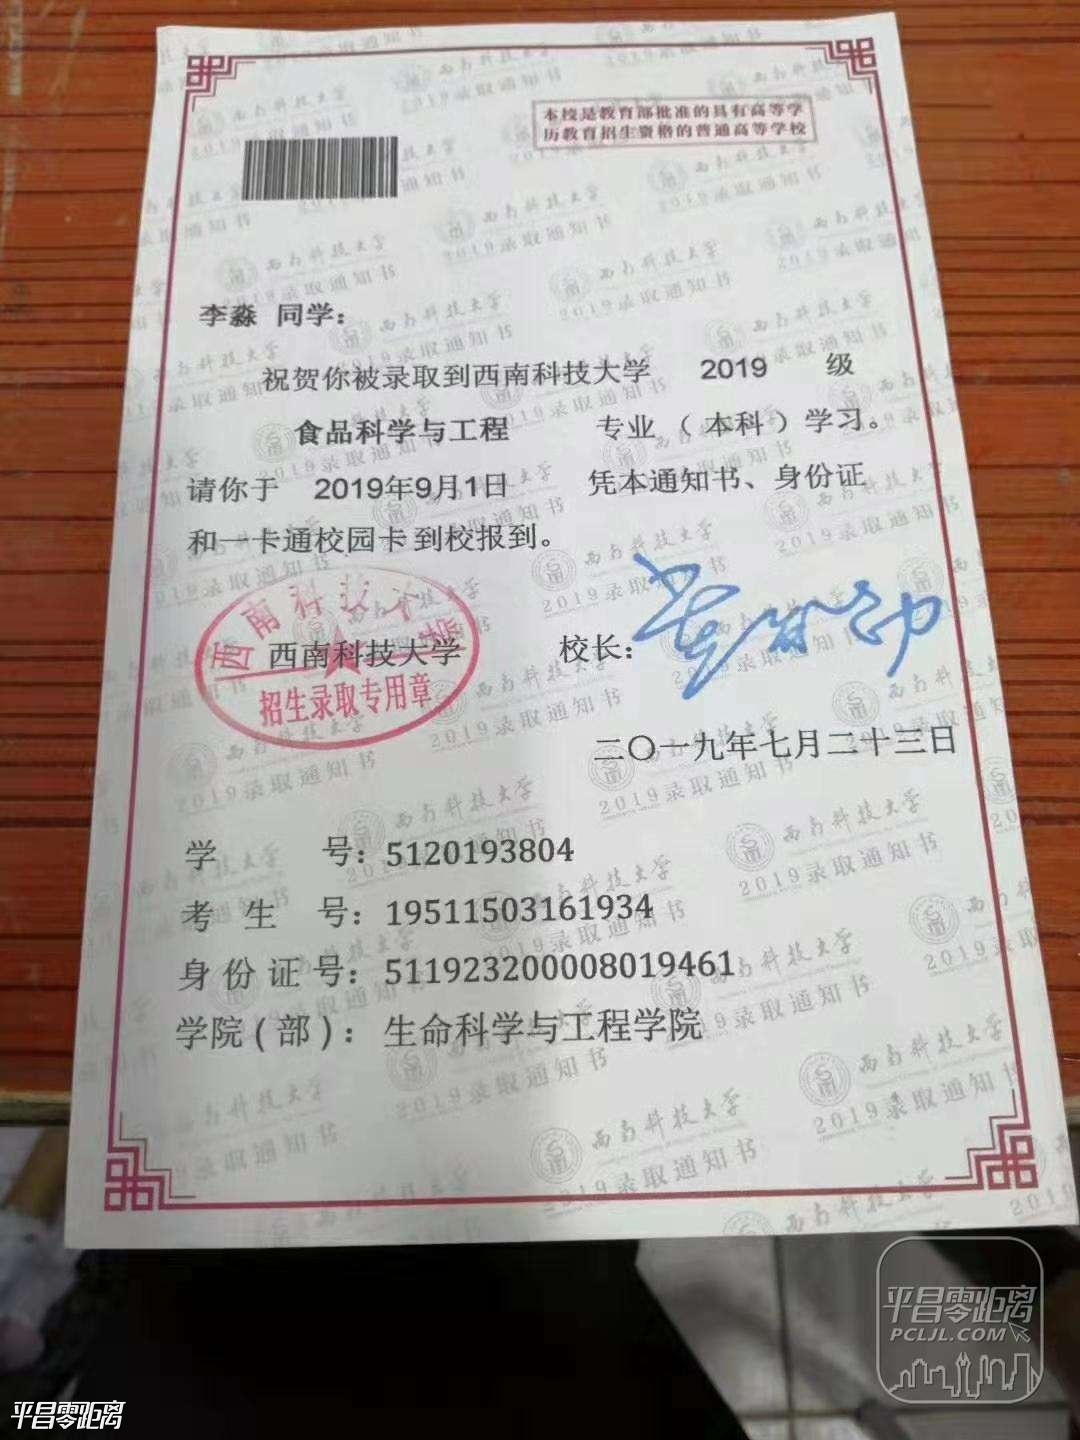 本校是教育部批准的具有高等学
历教育招生资格的普通高等学校
李淼 同学：
祝贺你被录取到西南科技大学 2019 级
食品科学与工程 专业（本科）学习。
请你于 2019年9月1日 凭本通知书、身份证
和一卡通校园卡到校报到。
西南科技大学
西南科技大学 校长：
招生录取专用章
二〇一九年七月二十三日
学 号：5120193804
考 生 号：19511503161934
身 份 证 号：511923200008019461
学院(部)：生命科学与工程学院
西南科技大学
2019录取通知书
平昌零距离
PCLJL.COM
平昌零距离